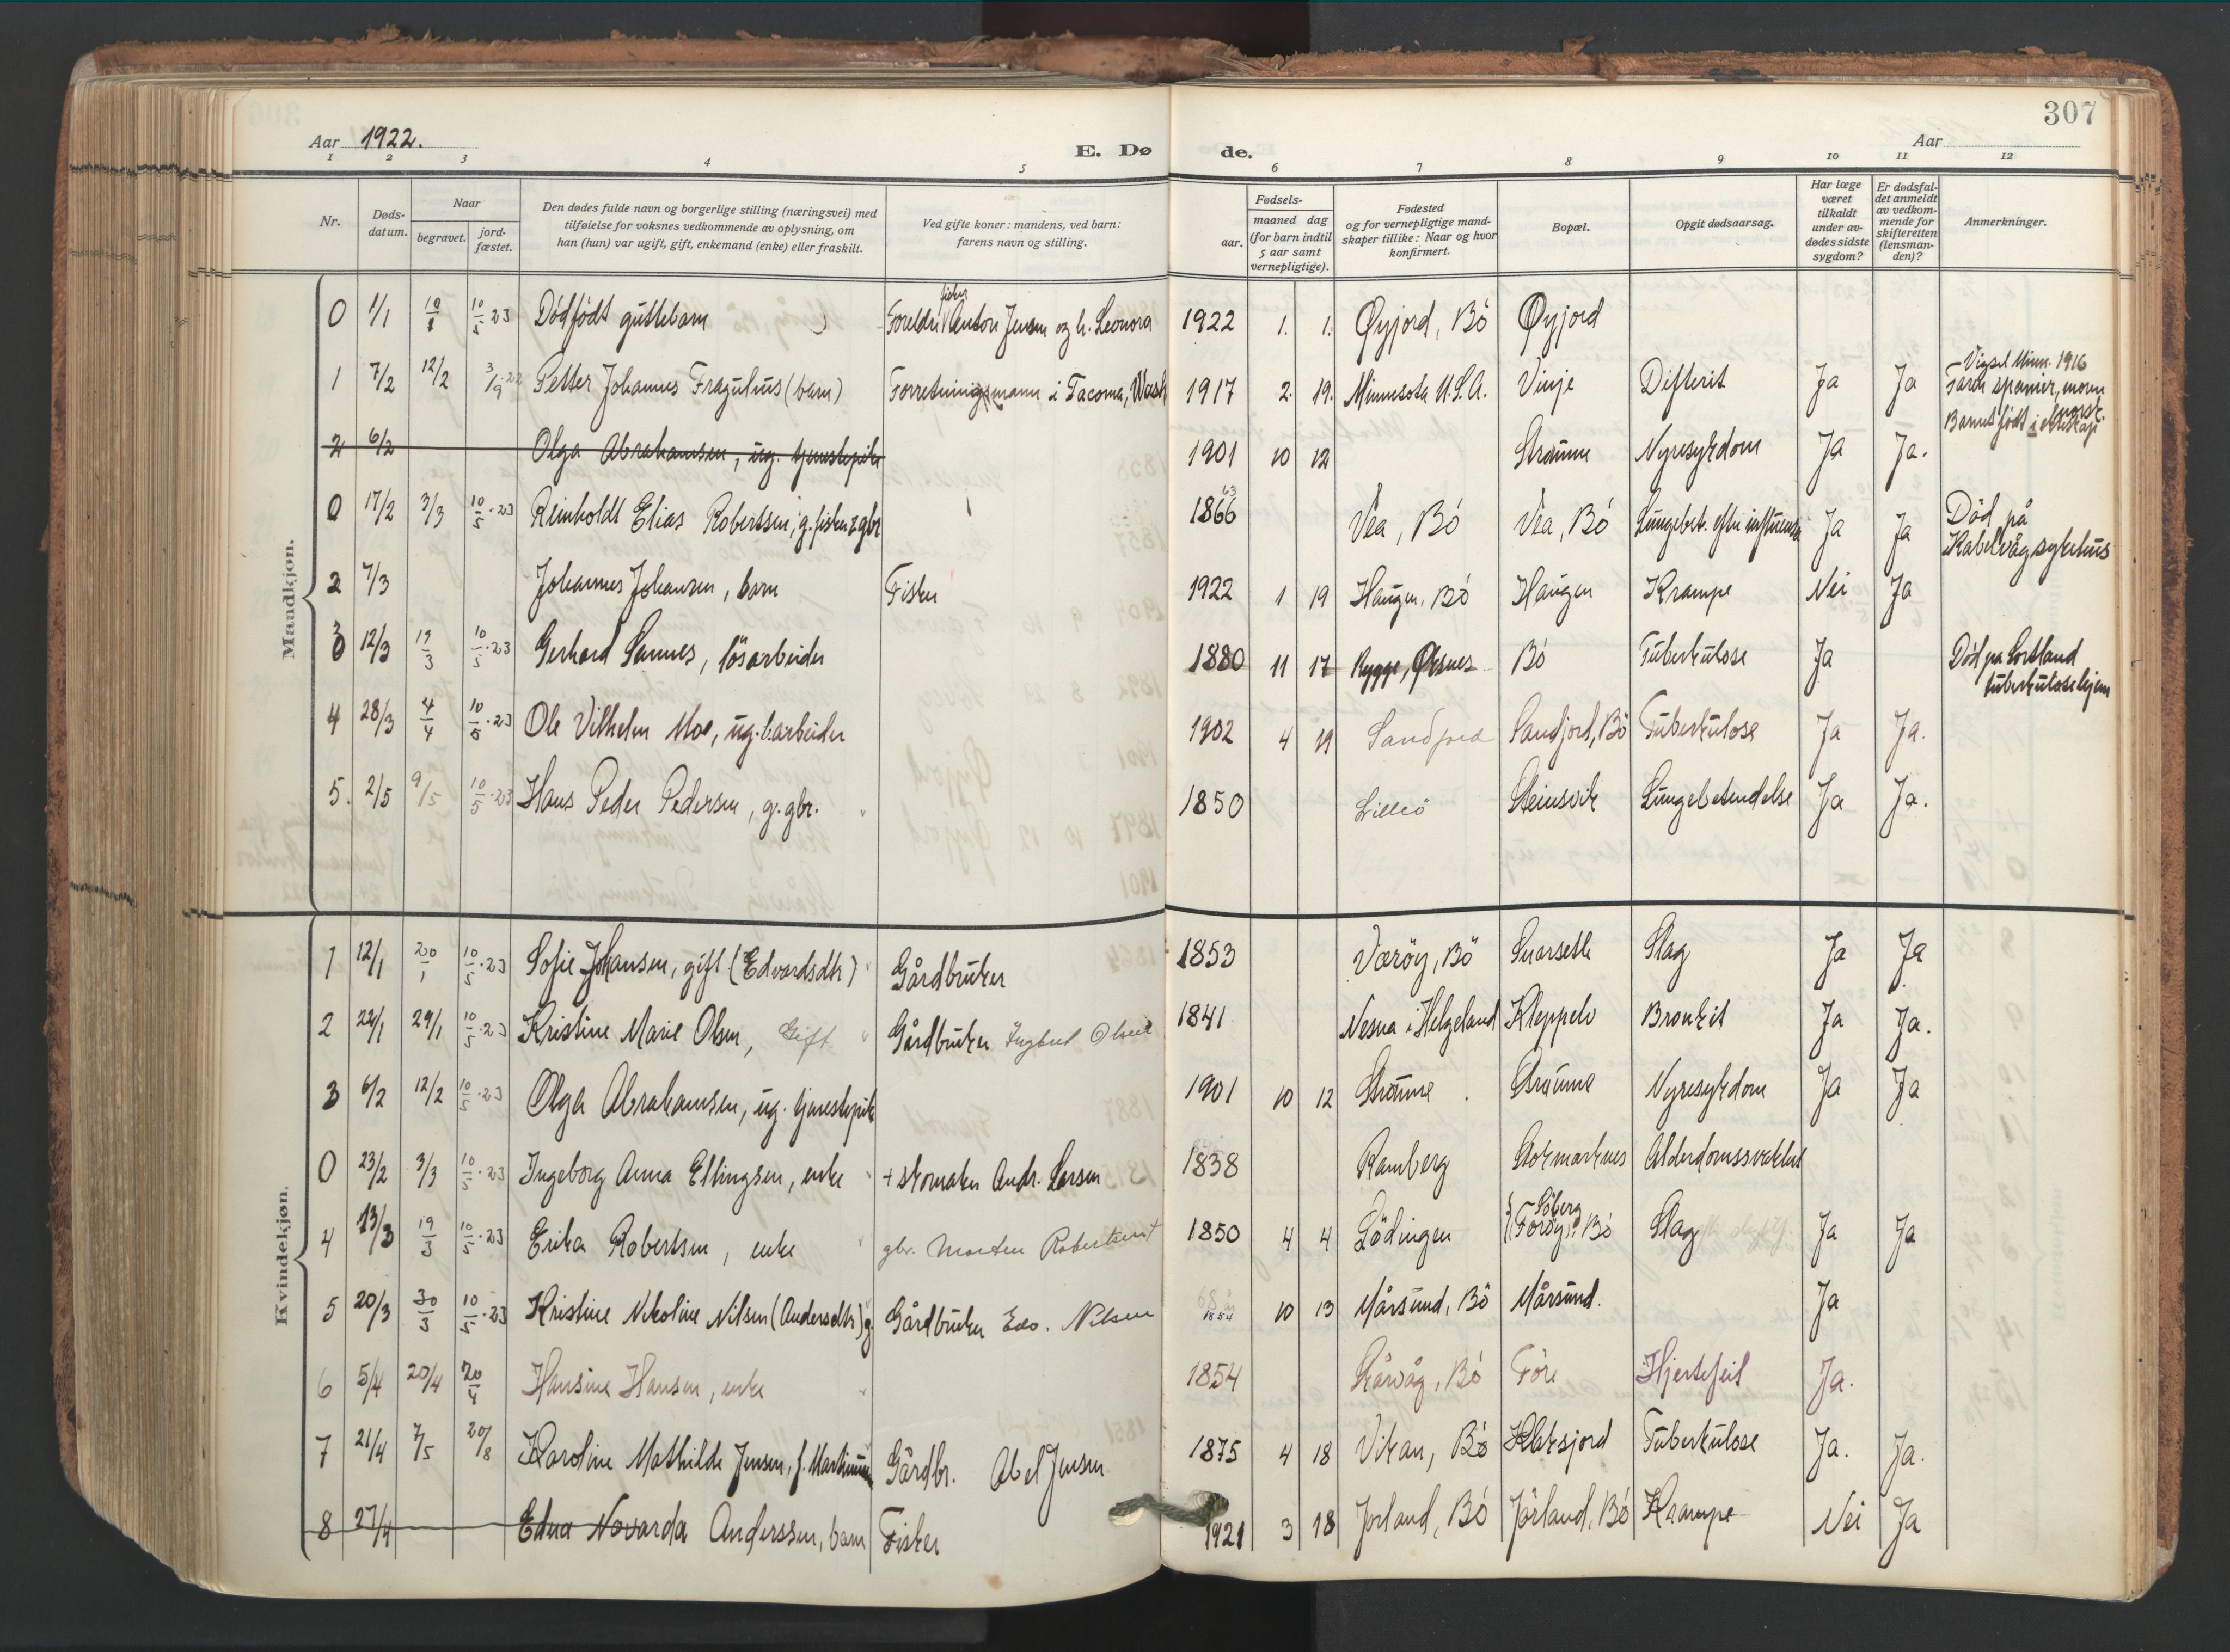 307
Aar 1922.
E. Dø de.
Aar
1 2 3 4 5 6 7 8 9 10 11 12
Nr.
Døds-
datum.
Naar
begravet.
jord-
fæstet.
Den dødes fulde navn og borgerlige stilling (næringsvei) med
tilføielse for voksnes vedkommende av oplysning, om
han (hun) var ugift, gift, enkemand (enke) eller fraskilt.
Ved gifte koner: mandens, ved barn:
farens navn og stilling.
Fødsels-
aar.
maaned dag
(for barn indtil
5 aar samt
vernepligtige).
Fødested
og for vernepligtige mand-
skaper tillike: Naar og hvor
konfirmert.
Bopæl.
Opgit dødsaarsag.
Har læge
været
tilkaldt
under av-
dødes sidste
sygdom?
Er dødsfal-
det anmeldt
av vedkom-
mende for
skifteretten
(lensman-
den)?
Anmerkninger.
Mandkjøn.
0 1/1 10/5 23 Dødfødt guttebarn Foreldre fisker Anton Jensen og h. Leonora 1922 1. 1. Øyjord, Bö Øyjord
1 7/2 12/2 3/9 22 Petter Johannes Fragulius (barn) Forretningsmann i Tacoma, Wash 1917 2. 19. Minnesota U.S.A. Vinje Difterit Ja Ja Vigsel Minn. 1916
Faren spanier, moren norsk.
Barnet født i ekteskap
2 6/2 Olga Abrahamsen, ug. tjenestepike 1901 10 12 Straume Nyresykdom Ja Ja.
0 17/2 3/3 10/5 23 Reinholdt Elias Robertsen, g. fisker & gbr 1866 63 Vea, Bó Vea, Bó Lungebet. efter influensa Ja Ja Död på
Kabelvåg sykehus
2 7/3 Johannes Johansen, barn Fisker 1922 1 19 Haugen, Bö Haugen Krampe Nei Ja
3 12/3 19/3 10/5 23 Gerhard Sannes, lösarbeider 1880 11 17 Rygge, Öksnes Bö Tuberkulose Ja Död på Sortland
tuberkulosehjem
4 28/3 4/4 10/5 23 Ole Vilhelm Moe, ug. arbeider 1902 4 19 Sandjord Sandjord, Bö Tuberkulose Ja Ja.
5. 2/5 9/5 10/5 23 Hans Peder Pedersen, g. gbr. 1850 Lilleö Steinsvik Lungebetendelse Ja Ja.
Kvindekjøn.
1 12/1 20/1 10/5 23 Sofie Johansen, gift (Edvardsdtr) Gårdbruker 1853 Væröy, Bö Svarsetle Slag Ja Ja
2 22/1 29/1 10/5 23 Kristine Marie Olsen, Gift Gårdbruker Ingbret Olsen 1841 Nesna i Helgeland Kleppelv Bronkit Ja Ja.
3 6/2 12/2 10/5 23 Olga Abrahamsen, ug. tjenestepik 1901 10 12 Straume Straume Nyresykdom Ja Ja
0 23/2 3/3 10/5 23 Ingeborg Anna Ellingsen, enke + skomaker Andr. Larsen 1838 Ramberg Stokmarknes Alderdomssvakhet
4 13/3 19/3 10/5 23 Erika Robertsen, enke gbr. Morten Robertsen 1850 4 4 Lödingen Söberg
Foröy, Bö Slag Ja Ja
5 20/3 30/3 10/5 23 Kristine Nikoline Nilsen (Andersdtr) g Gårdbruker Edv. Nilsen 1854 10 13 Mårsund, Bö Mårsund. Ja
6 5/4 20/4 20/4 Hansine Hansen, enke 1854 Skårvåg, Bö Före Hjertefeil Ja.
7 21/4 7/5 20/8 Karoline Mathilde Jensen, f. Martinussen Gårdbr. Abel Jensen 1875 4 18 Vikan, Bö Klaksjord Tuberkulose Ja. Ja.
8 27/4 Edna Novarda Anderssen, barn Fisker 1921 3 18 Jorland, Bö Jörland, Bö Krampe Nei Ja